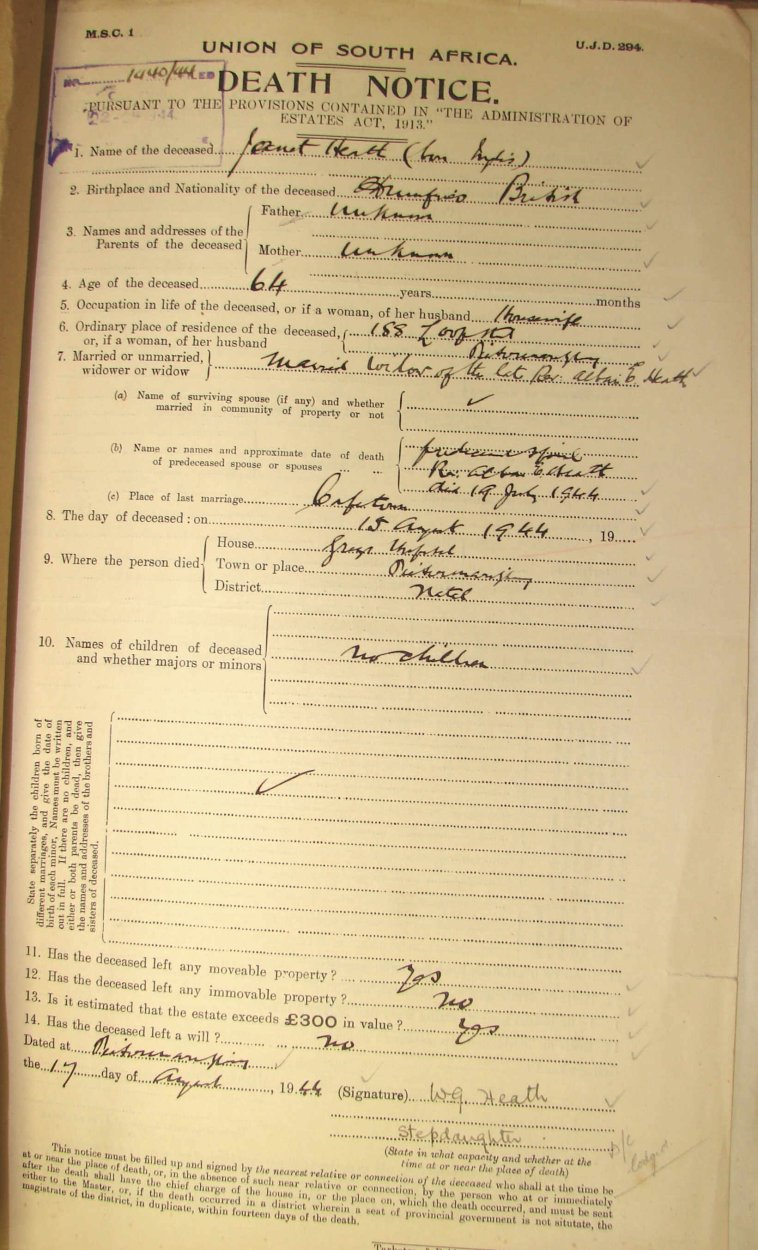 M.S.C. 1
U.J.D. 294.
UNION OF SOUTH AFRICA.
No. 1440/44 ED
DEATH NOTICE.
PURSUANT TO THE PROVISIONS CONTAINED IN "THE ADMINISTRATION OF
ESTATES ACT, 1913."
1. Name of the deceased Janet Heath (born Inglis)
2. Birthplace and Nationality of the deceased Dumfries British
3. Names and addresses of the
Parents of the deceased
Father unknown
Mother unknown
4. Age of the deceased 64 years months
5. Occupation in life of the deceased, or if a woman, of her husband Housewife
6. Ordinary place of residence of the deceased,
or, if a woman, of her husband
188 Loop St
Pietermaritzburg
7. Married or unmarried,
widower or widow
Married Widow of the late Rev. Alban E Heath
(a) Name of surviving spouse (if any) and whether
married in community of property or not
(b) Name or names and approximate date of death
of predeceased spouse or spouses
Rev. Alban E Heath
died 19 July 1944
(c) Place of last marriage Capetown
8. The day of deceased: on 15 August 1944, 19
9. Where the person died
House Greys Hospital
Town or place Pietermaritzburg
District Natal
10. Names of children of deceased
and whether majors or minors
no children
State separately the children born of
different marriages, and give the date of
birth of each minor. Names must be written
out in full. If there are no children, and
either or both parents be dead, then give
the names and addresses of the brothers and
sisters of deceased.
11. Has the deceased left any moveable property? yes
12. Has the deceased left any immovable property? no
13. Is it estimated that the estate exceeds £300 in value? yes
14. Has the deceased left a will? no
Dated at Pietermaritzburg
the 17 day of August, 1944 (Signature) W.G. Heath
Stepdaughter
(State in what capacity and whether at the
time at or near the place of death)
This notice must be filled up and signed by the nearest relative or connection of the deceased who shall at the time be
at or near the place of death, or, in the absence of such near relative or connection, by the person who at or immediately
after the death shall have the chief charge of the house in, or the place on, which the death occurred, and must be sent
either to the Master, or, if the death occurred in a district wherein a seat of provincial government is not situtate, the
magistrate of the district, in duplicate, within fourteen days of the death.